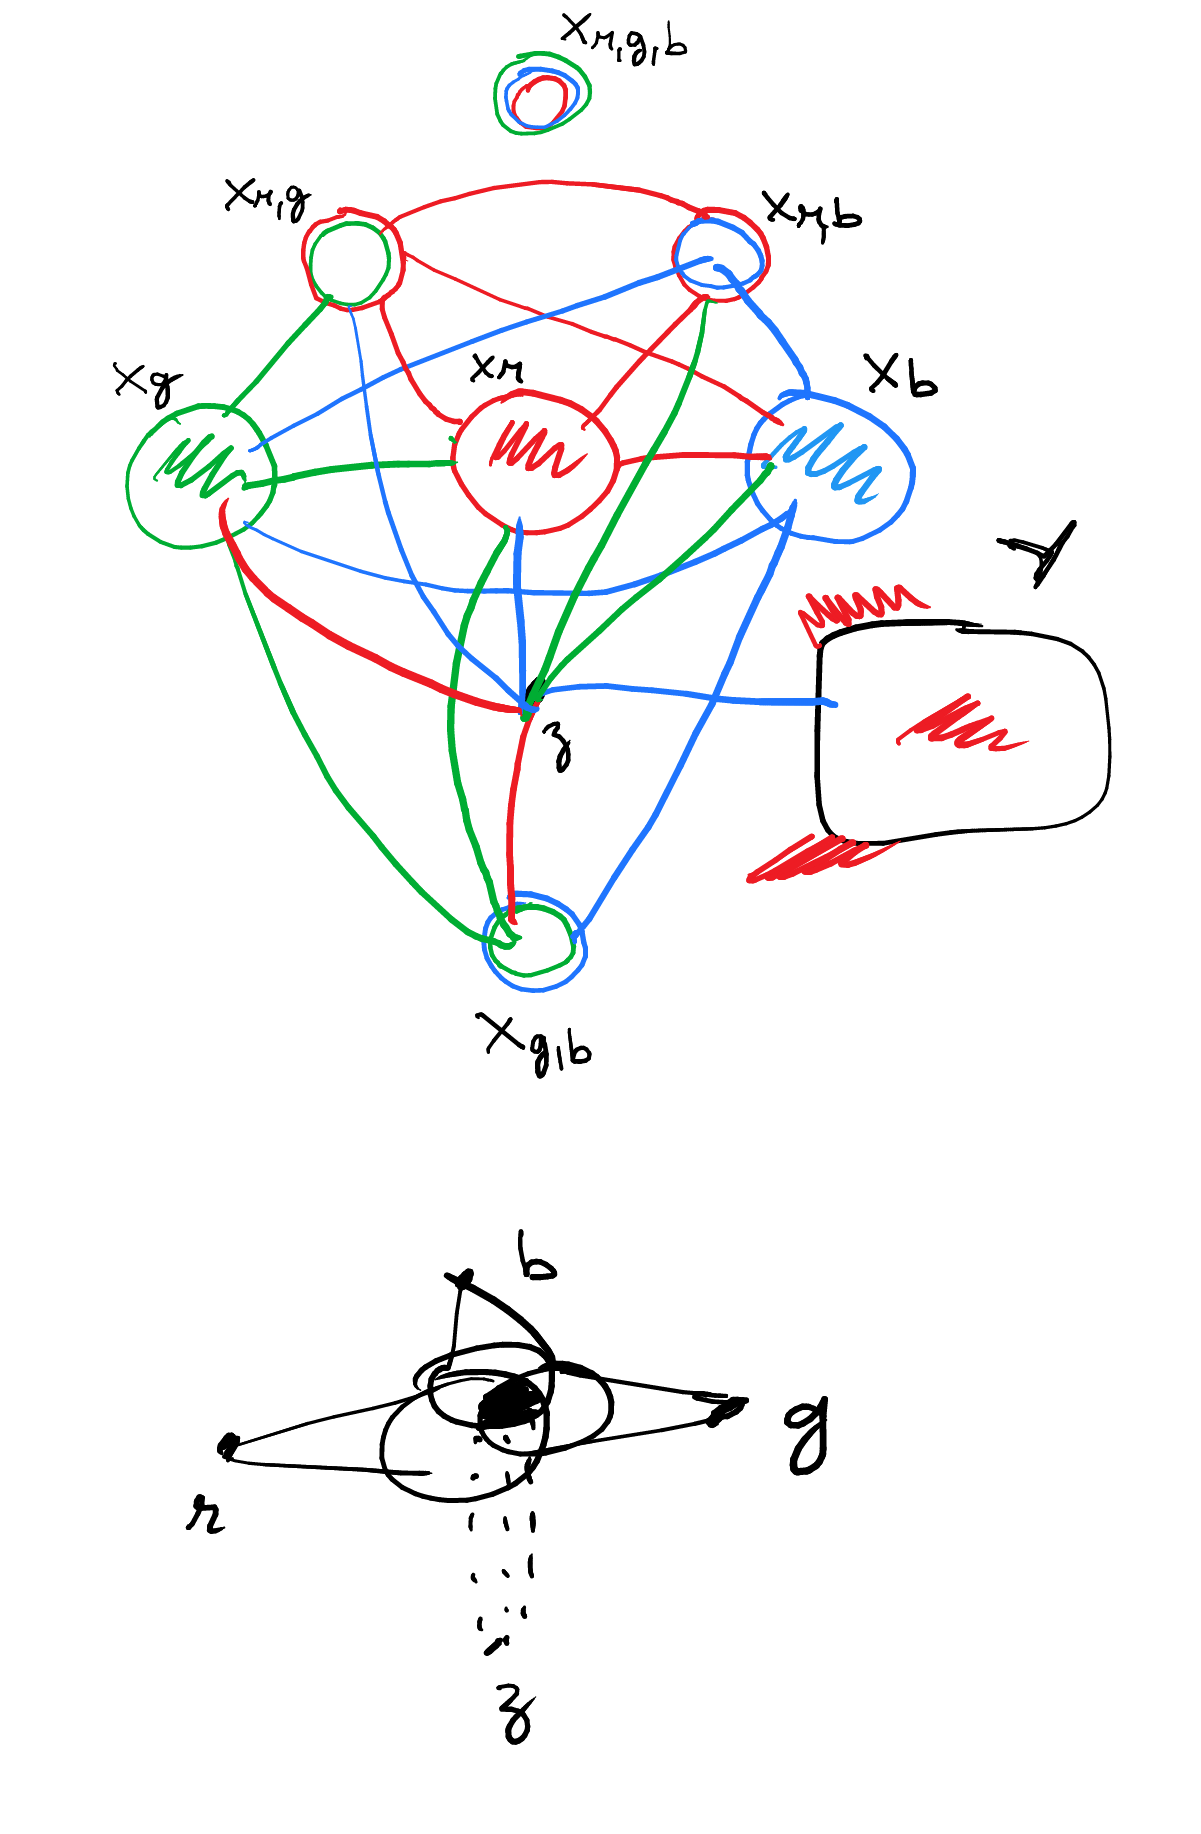 x_{r,g,b}
x_{r,g}
x_{r,b}
x_g
x_r
x_b
Y
z
x_{g,b}
b
g
r
z